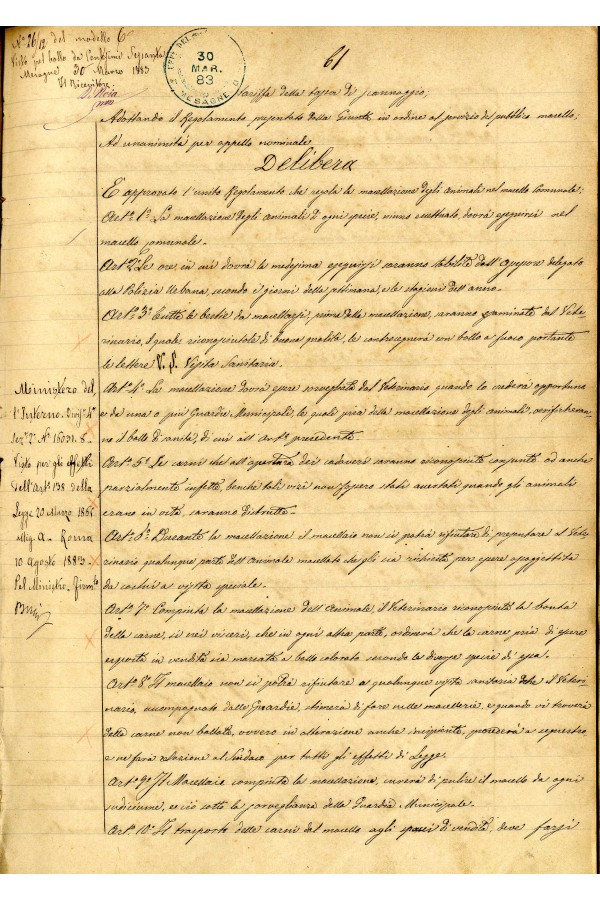 Nº 26/12 del modello C
Visto pel bollo da Centesimi Sessanta
Mesagne 30 Marzo 1883
Il Ricevitore
30
MAR.
83
MESAGNE
61
tariffa della tassa di scannaggio;
Adottando il Regolamento, presentato dalla Giunta, in ordine al servizio del pubblico macello;
Ad unanimità per appello nominale
Delibera
E' approvato l'unito Regolamento che regola la macellazione degli animali nel macello Comunale;
Art.º 1º La macellazione degli animali di ogni specie, niuno eccettuato, dovrà eseguirsi nel
macello comunale.
Art.º 2º Le ore, in cui dovrà la medesima eseguirsi saranno stabilite dall'Assessore delegato
alla Polizia Urbana, secondo i giorni della settimana, e le stagioni dell'anno.
Art.º 3º Tutte le bestie da macellarsi, prima della macellazione, saranno esaminate dal Vete-
rinario, il quale riconosciutole di buona qualità, le contrassegnerà con bollo a fuoco portante
le lettere V. S. Visita Sanitaria.
Art.º 4º La macellazione dovrà essere sorvegliata dal Veterinario quando lo crederà opportuno
e da una o più Guardie Municipali, le quali pria della macellazione degli animali, verificheran-
no il bollo di sanità, di cui all'Art.º precedente.
Art.º 5º Le carni che all'apertura dei cadaveri saranno riconosciute in tutto od anche
parzialmente infette, benchè tali vizi non fossero stati accertati quando gli animali
erano in vita, saranno distrutte.
Art.º 6º Durante la macellazione il macellaio non si potrà rifiutare di presentare al Vete-
rinario qualunque parte dell'Animale macellato che gli sia richiesta per essere assoggettita
da costui a visita speciale.
Art.º 7º Compiuta la macellazione dell'Animale, il Veterinario riconosciuta la bontà
della carne, sì nei visceri, che in ogni altra parte, ordinerà che la carne pria di essere
esposta in vendita sia marcata a bollo colorato secondo la diversa specie di essa.
Art.º 8º Il macellaio non si potrà rifiutare a qualunque visita sanitaria che il Veteri-
nario, accompagnato dalle Guardie, stimerà di fare nelle macellerie, e quando vi troverà
della carne non bollata, ovvero in alterazione anche incipiente, procederà a sequestro
e ne farà relazione al Sindaco per tutti gli effetti di Legge.
Art.º 9º Il Macellaio compiuta la macellazione, curerà di pulire il macello da ogni
sudiciume, e ciò sotto la sorveglianza della Guardia Municipale.
Art.º 10º Il trasporto delle carni dal macello agli spacci di vendita, deve farsi
Ministero del
l'Interno. Divisº 4ª
Sez.º 2ª Nº 16031. 8-
Visto per gli effetti
dell'Artº 138 della
Legge 20 Marzo 1865
alleg. A - Roma
10 Agosto 1883
Pel Ministro - Firmato